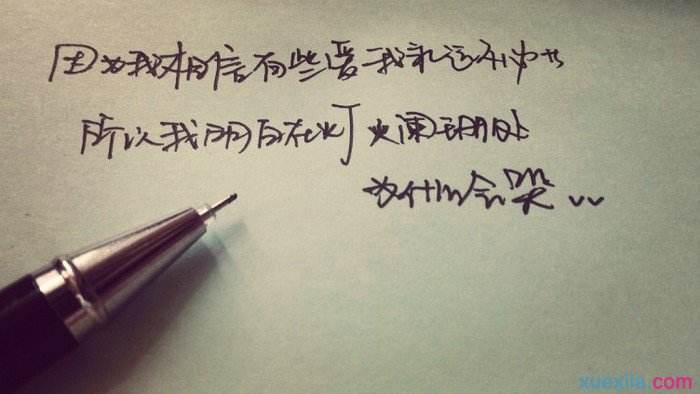 因为我相信有些爱我永远不
所以我明白在灯火阑珊处
为什么会哭
xuexila.com